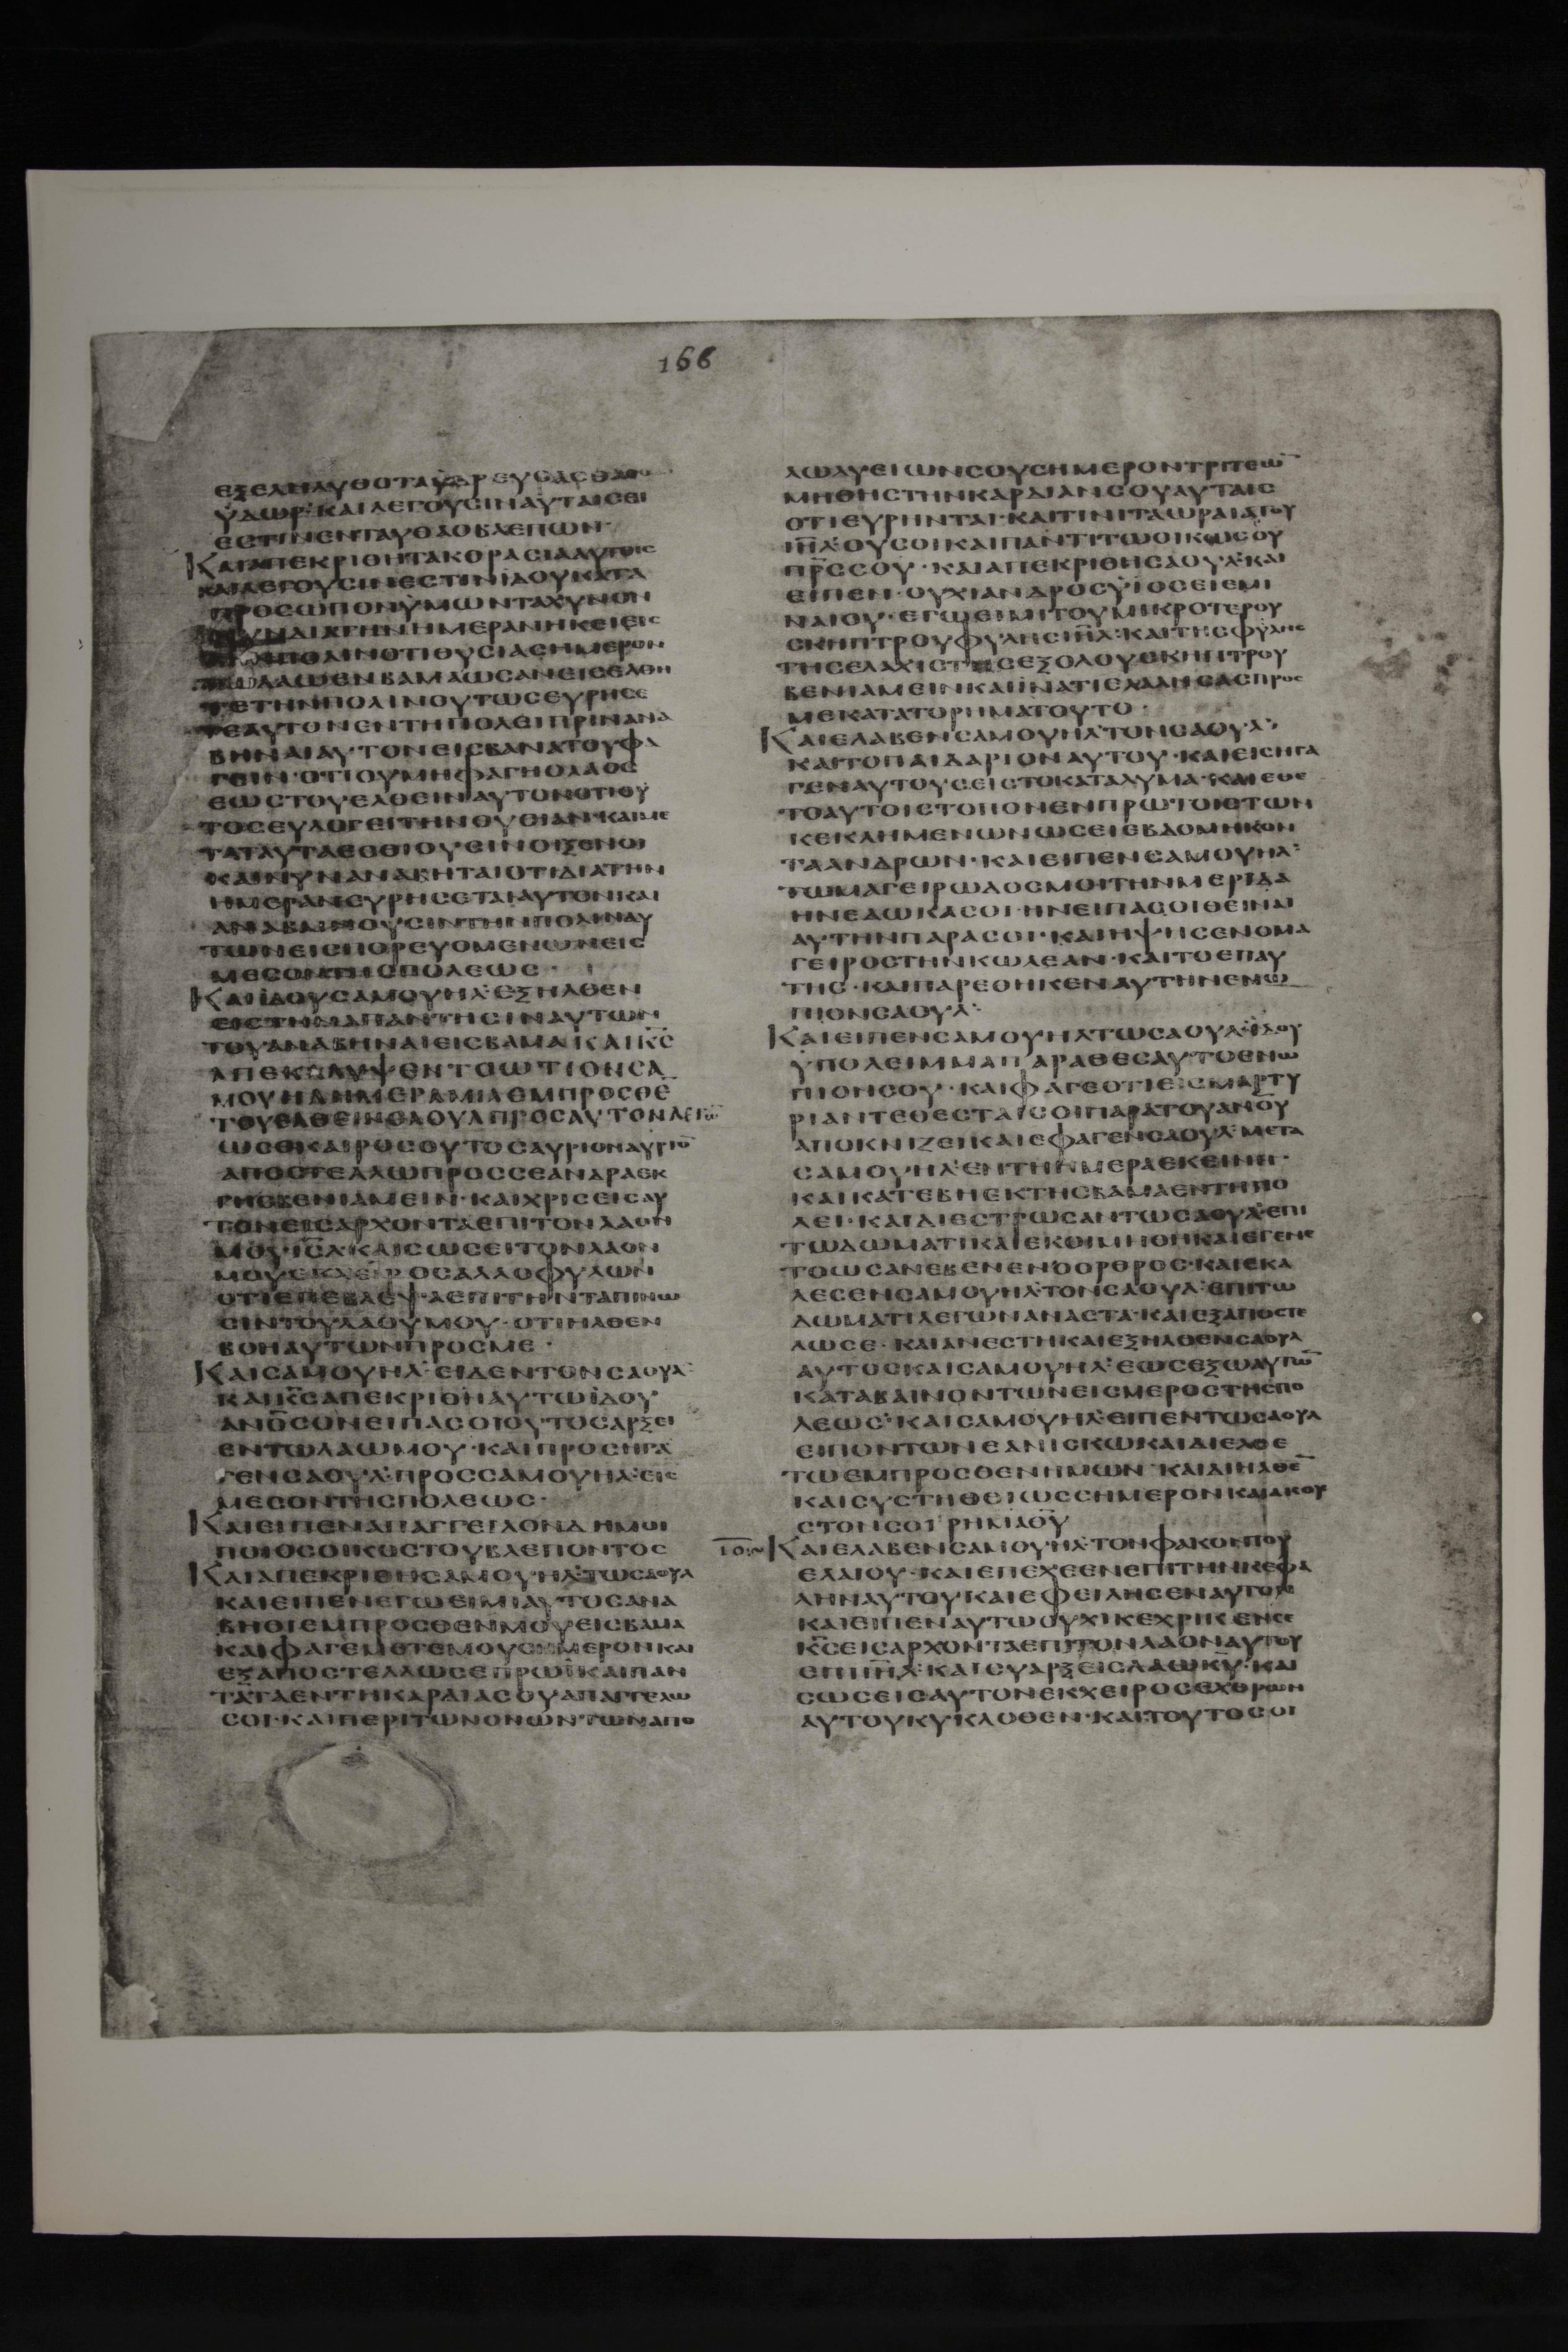 166
ΕΞΕΛΗΛΥΘΟΤΑΣΥΔΡΕΥΣΑΣΘΑΙ
ΫΔΩΡ· ΚΑΙΛΕΓΟΥCΙΝΑΥΤΑΙCΕΙ
ΕCΤΙΝΕΝΤΑΥΘΑΟΒΛΕΠΩΝ·
ΚΑΙΑΠΕΚΡΙΘΗΤΑΚΟΡΑCΙΑΑΥΤΟΙC
ΚΑΙΛΕΓΟΥCΙΝΕCΤΙΝΙΔΟΥΚΑΤΑ
ΠΡΟCΩΠΟΝΫΜΩΝΤΑΧΥΝΟΝ
ΔΙΑΤΗΝΗΜΕΡΑΝΗΚΕΙΕΙC
ΠΟΛΙΝΟΤΙΘΥCΙΑCΗΜΕΡΟΝ
ΛΑΩΕΝΒΑΜΑΩCΑΝΕΙCΕΛΘΗ
ΤΕΤΗΝΠΟΛΙΝΟΥΤΩCΕΥΡΗCΕ
ΤΕΑΥΤΟΝΕΝΤΗΠΟΛΕΙΠΡΙΝΑΝΑ
ΒΗΝΑΙΑΥΤΟΝΕΙCΒΑΝΑΤΟΥΦΑ
ΓΕΙΝ·ΟΤΙΟΥΜΗΦΑΓΗΟΛΑΟC
ΕΩCΤΟΥΕΛΘΕΙΝΑΥΤΟΝΟΤΙΟΥ
ΤΟCΕΥΛΟΓΕΙΤΗΝΘΥCΙΑΝ·ΚΑΙΜΕ
ΤΑΤΑΥΤΑΕCΘΙΟΥCΙΝΟΙΞΕΝΟΙ
ΚΑΙΝΥΝΑΝΑΒΗΤΑΙΟΤΙΔΙΑΤΗΝ
ΗΜΕΡΑΝΕΥΡΗCΕΤΑΙΑΥΤΟΝΚΑΙ
ΑΝΑΒΑΙΝΟΥCΙΝΤΗΝΠΟΛΙΝΑΥ
ΤΩΝΕΙCΠΟΡΕΥΟΜΕΝΩΝΕΙC
ΜΕCΟΝΤΗCΠΟΛΕΩC·
ΚΑΙΙΔΟΥCΑΜΟΥΗΛ·ΕΞΗΛΘΕΝ
ΕΙCΤΗΝΑΠΑΝΤΗCΙΝΑΥΤΩΝ
ΤΟΥΑΝΑΒΗΝΑΙΕΙCΒΑΜΑΚΑΙΚ̅C̅
ΑΠΕΚΑΛΥΨΕΝΤΟΩΤΙΟΝCΑ
ΜΟΥΗΛΗΜΕΡΑΜΙΑΕΜΠΡΟCΘΕ̅
ΤΟΥΕΛΘΕΙΝCΑΟΥΛΠΡΟCΑΥΤΟΝΛΕΓΩ̅
ΩCΟΚΑΙΡΟCΟΥΤΟCΑΥΡΙΟΝ
ΑΠΟCΤΕΛΛΩΠΡΟCCΕΑΝΔΡΑΕΚ
ΓΗCΒΕΝΙΑΜΕΙΝ·ΚΑΙΧΡΙCΕΙCΑΥ
ΤΟΝΕΙCΑΡΧΟΝΤΑΕΠΙΤΟΝΛΑΟΝ
ΜΟΥ·ΚΑΙCΩCΕΙΤΟΝΛΑΟΝ
ΜΟΥΕΚΧΕΙΡΟCΑΛΛΟΦΥΛΩΝ
ΟΤΙΕΠΕΒΛΕΨΑΕΠΙΤΗΝΤΑΠΙΝΩ
CΙΝΤΟΥΛΑΟΥΜΟΥ·ΟΤΙΗΛΘΕΝ
ΒΟΗΑΥΤΩΝΠΡΟCΜΕ·
ΚΑΙCΑΜΟΥΗΛ·ΕΙΔΕΝΤΟΝCΑΟΥΛ·
ΚΑΙΚ̅C̅ΑΠΕΚΡΙΘΗΑΥΤΩΙΔΟΥ
ΑΝΟ̅CΟΝΕΙΠΑCΟΙΟΥΤΟCΑΡΞΕΙ
ΕΝΤΩΛΑΩΜΟΥ·ΚΑΙΠΡΟCΗΓΑ
ΓΕΝCΑΟΥΛ·ΠΡΟCCΑΜΟΥΗΛ·ΕΙC
ΜΕCΟΝΤΗCΠΟΛΕΩC·
ΚΑΙΕΙΠΕΝΑΠΑΓΓΕΙΛΟΝΔΗΜΟΙ
ΠΟΙΟCΟΟΙΚΟCΤΟΥΒΛΕΠΟΝΤΟC
ΚΑΙΑΠΕΚΡΙΘΗCΑΜΟΥΗΛ·ΤΩCΑΟΥΛ
ΚΑΙΕΙΠΕΝΕΓΩΕΙΜΙΑΥΤΟCΑΝΑ
ΒΗΘΙΕΜΠΡΟCΘΕΝΜΟΥΕΙCΒΑΜΑ
ΚΑΙΦΑΓΕΜΕΤΕΜΟΥCΗΜΕΡΟΝΚΑΙ
ΕΞΑΠΟCΤΕΛΛΩCΕΠΡΩΪΚΑΙΠΑΝ
ΤΑΤΑΕΝΤΗΚΑΡΔΙΑCΟΥΑΠΑΓΓΕΛΩ
CΟΙ·ΚΑΙΠΕΡΙΤΩΝΟΝΩΝΤΩΝΑΠΟ
ΛΩΛΥΕΙΩΝCΟΥCΗΜΕΡΟΝΤΡΙΤΕΩ̅
ΜΗΘΗCΤΗΝΚΑΡΔΙΑΝCΟΥΑΥΤΑΙC
ΟΤΙΕΥΡΗΝΤΑΙ·ΚΑΙΤΙΝΙΤΑΩΡΑΙΑΤΟΥ
ΙΗ̅Λ·ΟΥCΟΙΚΑΙΠΑΝΤΙΤΩΟΙΚΩCΟΥ
ΠΡ̅CCΟΥ·ΚΑΙΑΠΕΚΡΙΘΗCΑΟΥΛ·ΚΑΙ
ΕΙΠΕΝ·ΟΥΧΙΑΝΔΡΟCΫΙΟCΕΙΕΜΙ
ΝΑΙΟΥ·ΕΓΩΕΙΜΙΤΟΥΜΙΚΡΟΤΕΡΟΥ
CΚΗΠΤΡΟΥΦΥΛΗCΙΗ̅Λ·ΚΑΙΤΗCΦΥΛΗC
ΤΗCΕΛΑΧΙCΤΗCΕΞΟΛΟΥCΚΗΠΤΡΟΥ
ΒΕΝΙΑΜΕΙΝΚΑΙΪΝΑΤΙΕΛΑΛΗCΑCΠΡΟC
ΜΕΚΑΤΑΤΟΡΗΜΑΤΟΥΤΟ·
ΚΑΙΕΛΑΒΕΝCΑΜΟΥΗΛ·ΤΟΝCΑΟΥΛ·
ΚΑΙΤΟΠΑΙΔΑΡΙΟΝΑΥΤΟΥ·ΚΑΙΕΙCΗΓΑ
ΓΕΝΑΥΤΟΥCΕΙCΤΟΚΑΤΑΛΥΜΑ·ΚΑΙΕΘΕ
ΤΟΑΥΤΟΙCΤΟΠΟΝΕΝΠΡΩΤΟΙCΤΩΝ
ΚΕΚΛΗΜΕΝΩΝΩCΕΙΕΒΔΟΜΗΚΟΝ
ΤΑΑΝΔΡΩΝ·ΚΑΙΕΙΠΕΝCΑΜΟΥΗΛ·
ΤΩΜΑΓΕΙΡΩΔΟCΜΟΙΤΗΝΜΕΡΙΔΑ
ΗΝΕΔΩΚΑCΟΙ·ΗΝΕΙΠΑCΟΙΘΕΙΝΑΙ
ΑΥΤΗΝΠΑΡΑCΟΙ·ΚΑΙΗΨΗCΕΝΟΜΑ
ΓΕΙΡΟCΤΗΝΚΩΛΕΑΝ·ΚΑΙΤΟΕΠΑΥ
ΤΗC·ΚΑΙΠΑΡΕΘΗΚΕΝΑΥΤΗΝΕΝΩ
ΠΙΟΝCΑΟΥΛ·
ΚΑΙΕΙΠΕΝCΑΜΟΥΗΛΤΩCΑΟΥΛ·ΪΔΟΥ
ΫΠΟΛΕΙΜΜΑΠΑΡΑΘΕCΑΥΤΟΕΝΩ
ΠΙΟΝCΟΥ·ΚΑΙΦΑΓΕΟΤΙΕΙCΜΑΡΤΥ
ΡΙΑΝΤΕΘΕCΤΑΙCΟΙΠΑΡΑΤΟΥΑΝΟ̅Υ
ΑΠΟΚΝΙΖΕΙΚΑΙΕΦΑΓΕΝCΑΟΥΛ·ΜΕΤΑ
CΑΜΟΥΗΛ·ΕΝΤΗΗΜΕΡΑΕΚΕΙΝΗ·
ΚΑΙΚΑΤΕΒΗΕΚΤΗCΒΑΜΑΕΝΤΗΠΟ
ΛΕΙ·ΚΑΙΔΙΕCΤΡΩCΑΝΤΩCΑΟΥΛ·ΕΠΙ
ΤΩΔΩΜΑΤΙΚΑΙΕΚΟΙΜΗΘΗΚΑΙΕΓΕΝΕ
ΤΟΩCΑΝΕΒΕΝΕΝΟΟΡΘΡΟC·ΚΑΙΕΚΑ
ΛΕCΕΝCΑΜΟΥΗΛ·ΤΟΝCΑΟΥΛ·ΕΠΙΤΩ
ΔΩΜΑΤΙΛΕΓΩΝΑΝΑCΤΑ·ΚΑΙΕΞΑΠΟCΤΕ
ΛΩCΕ·ΚΑΙΑΝΕCΤΗΚΑΙΕΞΗΛΘΕΝCΑΟΥΛ
ΑΥΤΟCΚΑΙCΑΜΟΥΗΛ·ΕΩCΕΞΩΑΥΤΩ̅
ΚΑΤΑΒΑΙΝΟΝΤΩΝΕΙCΜΕΡΟCΤΗCΠΟ
ΛΕΩC·ΚΑΙCΑΜΟΥΗΛ·ΕΙΠΕΝΤΩCΑΟΥΛ
ΕΙΠΟΝΤΩΝΕΑΝΙCΚΩΚΑΙΔΙΕΛΘΕ
ΤΩΕΜΠΡΟCΘΕΝΗΜΩΝ·ΚΑΙΔΙΗΛΘΕ̅
ΚΑΙCΥCΤΗΘΕΙΩCCΗΜΕΡΟΝΚΑΙΑΚΟΥ
CΤΟΝCΟΙΡΗΜΑΘΥ̅
ΙΟ ΚΑΙΕΛΑΒΕΝCΑΜΟΥΗΛ·ΤΟΝΦΑΚΟΝΤΟΥ
ΕΛΑΙΟΥ·ΚΑΙΕΠΕΧΕΕΝΕΠΙΤΗΝΚΕΦΑ
ΛΗΝΑΥΤΟΥΚΑΙΕΦΕΙΛΗCΕΝΑΥΤΟΝ
ΚΑΙΕΙΠΕΝΑΥΤΩΟΥΧΙΚΕΧΡΙΚΕΝCΕ
Κ̅C̅ΕΙCΑΡΧΟΝΤΑΕΠΙΤΟΝΛΑΟΝΑΥΤΟΥ
ΕΠΙΙΗ̅Λ·ΚΑΙCΥΑΡΞΕΙCΛΑΩΚ̅Υ̅·ΚΑΙ
CΩCΕΙCΑΥΤΟΝΕΚΧΕΙΡΟCΕΧΘΡΩΝ
ΑΥΤΟΥΚΥΚΛΟΘΕΝ·ΚΑΙΤΟΥΤΟCΟΙ